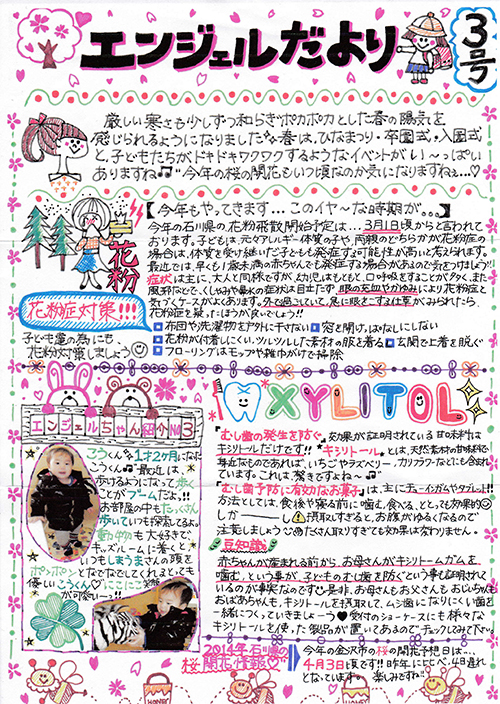 エンジェルだより
3号
厳しい寒さも少しずつ和らぎポカポカとした春の陽気を
感じられるようになりました♪春は、ひなまつり・卒園式・入園式
と、子どもたちがドキドキワクワクするようなイベントがい〜っぱい
ありますね♫今年の桜の開花もいつ頃なのか気になりますねぇ…♡
花粉
【今年もやってきます…このイヤ〜な時期が。。。】
今年の石川県の花粉飛散開始予定は…3月1日頃からと言われて
おります。子どもは、元々アレルギー体質の子や、両親のどちらかが花粉症の
場合は、体質を受け継いだ子どもも発症する可能性が高いと考えられます。
最近では、早くも1歳未満の赤ちゃんでも発症する場合があるので気をつけましょう!
症状は主に、大人と同様ですが、幼児はもともと、口呼吸をすることが多く、また
風邪などで、くしゃみや鼻水の症状は目立たず眼の充血やかゆみにより花粉症と
気づくケースがよくあります。外で過ごしていて、急に眼をこする仕草がみられたら、
花粉症を疑ったほうが良いでしょう!!
花粉症対策!!!
子ども達の為にも、
花粉対策しましょう
布団や洗濯物をアタトに干さない 窓を開けっぱなしにしない
花粉が付着しにくい、ツルツルした素材の服を着る 玄関で上着を脱ぐ
フローリングはモップや雑巾がけで掃除
エンジェルちゃん紹介No3
こうくん 1才2ヶ月になた
こうくん♫最近は、
歩けるようになって歩く
ことがブームだよ!!
お部屋の中もたっくさん
歩いていつも探索してるよ。
動物も大好きで
キッズルームに着くと
いつもしまうまさんの頭を
ポンポンとなでなでしてくれるとっても
優しいこうくん♡にこにこ笑顔
が可愛い〜!!
XYLITOL
「むし歯の発生を防ぐ」効果が証明されている甘味料は
キシリトールだけです!! "キシリトール"とは、天然素材の甘味料で
身近なものであれば、いちごやラズベリー、カリフラワーなどにも含まれて
います。これは、驚きですよね〜♫
「むし歯予防に有効なお菓子」は、主にチューイングガムやタブレット!!
方法としては、食後や寝る前に噛む、食べる、ととっても効果的
しか――し 摂取しすぎると、お腹がゆるくなるので
注意しましょう
豆知識
赤ちゃんが産まれる前から、お母さんがキシリトールガムを
噛む、という事が、子どものむし歯を防ぐという事も証明されて
いるのが事実なのです♡是非、お母さんもお父さんもおじいちゃんも
おばあちゃんも、キシリトールを摂取して、ムシ歯になりにくい歯を
一緒につくっていきましょーう♥受付のショーケースにも様々な
キシリトールを使った製品が置いてあるのでチェックしてみて下さい。
2014年石川県の
桜開花情報♡
今年の金沢市の桜の開花予想日は…
4月3日頃です!!昨年に比べ、4日遅れ
となっています。楽しみですね!!
HONEY
HONEY